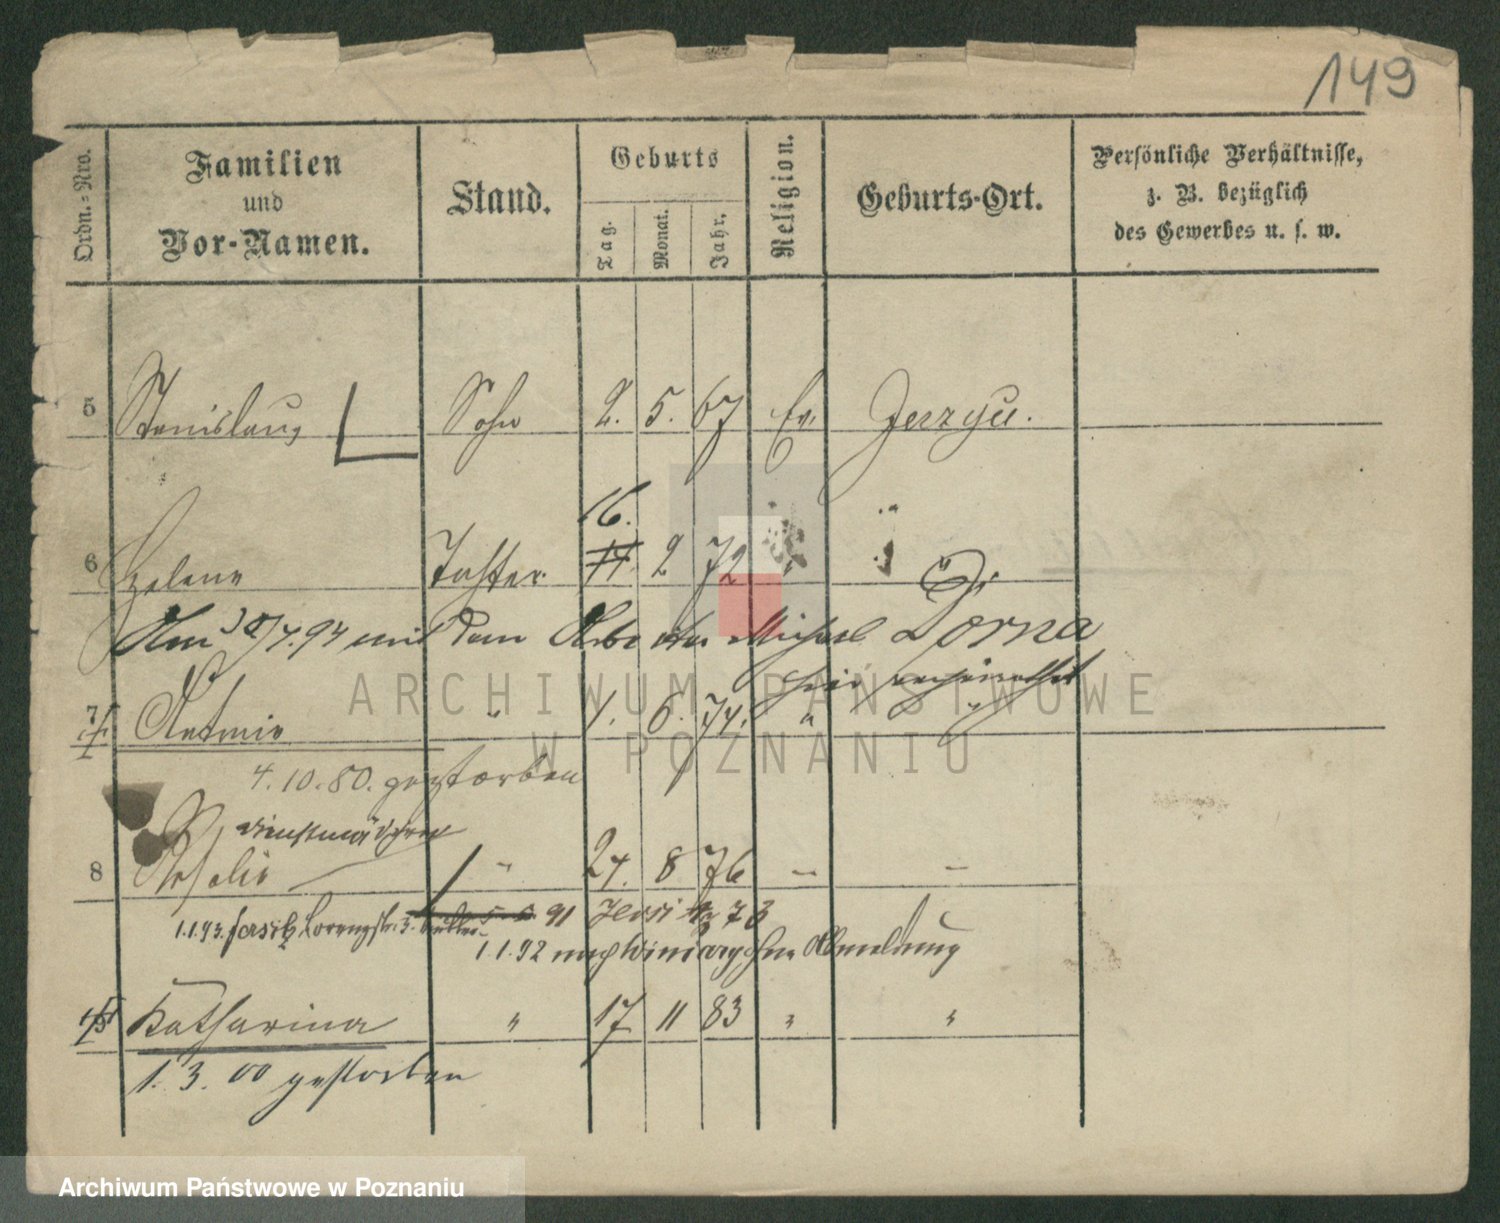 149
Ordn.-Nro.
Familien
und
Vor-Namen.
Stand.
Geburts
Tag.
Monat.
Jahr.
Religion.
Geburts-Ort.
Persönliche Verhältnisse,
z. B. bezüglich
des Gewerbes u. s. w.
5 Stanislaus Sohn 2. 5. 67 Jerzyce.
16.
6 Helene Tochter 17 2 72 "
Am 30/7.94 mit dem Michael Dorna
hier verheirathet
7 " 1. 6. 74. " "
4.10.80. gestorben
Dienstmädchen
8 Rosalie " 27. 8 76 " "
91 Jersitz 73
1.1.93. Jersitz
1.1.92 nach Winiary ohne Abmeldung
9 Katharina " 17 11 83 " "
1. 3. 00 gestorben
ARCHIWUM PAŃSTWOWE
W POZNANIU
Archiwum Państwowe w Poznaniu